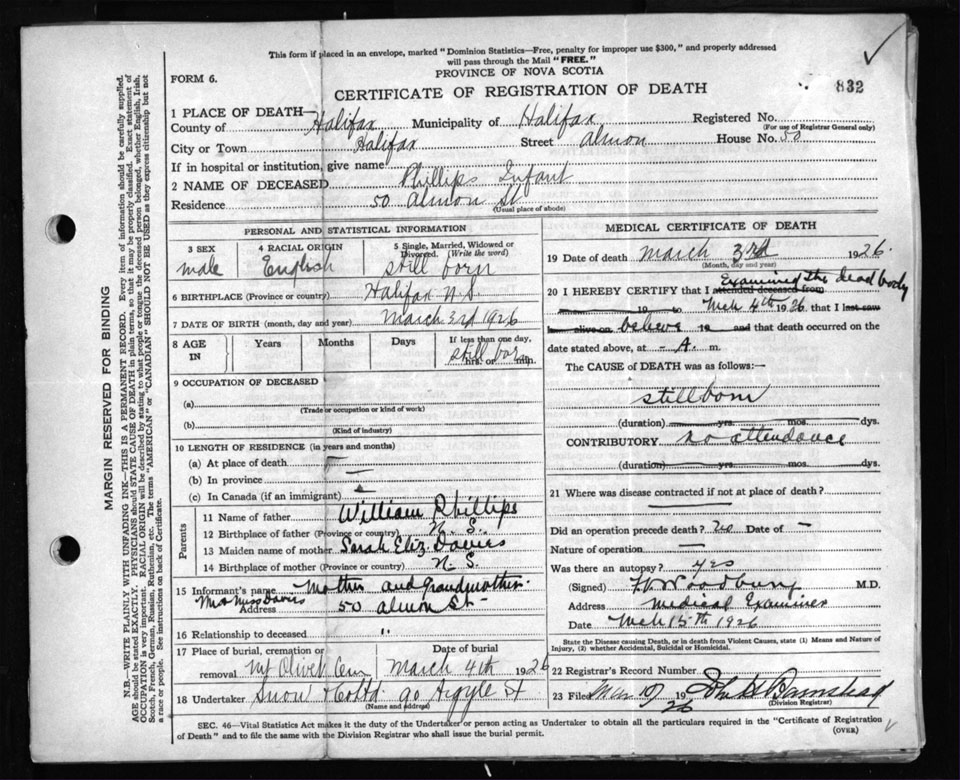 This form if placed in an envelope, marked "Dominion Statistics—Free, penalty for improper use $300," and properly addressed
will pass through the Mail "FREE."
PROVINCE OF NOVA SCOTIA
FORM 6.
CERTIFICATE OF REGISTRATION OF DEATH
832
1 PLACE OF DEATH—
County of Halifax Municipality of Halifax Registered No.
(For use of Registrar General only)
City or Town Halifax Street Almon House No. 50
If in hospital or institution, give name
2 NAME OF DECEASED Phillips Infant
Residence 50 Almon St
(Usual place of abode)
PERSONAL AND STATISTICAL INFORMATION
3 SEX 4 RACIAL ORIGIN 5 Single, Married, Widowed or Divorced. (Write the word)
male English still born
6 BIRTHPLACE (Province or country) Halifax N.S.
7 DATE OF BIRTH (month, day and year) March 3rd 1926
8 AGE IN Years Months Days If less than one day,
still born hrs. or min.
9 OCCUPATION OF DECEASED
(a)
(Trade or occupation or kind of work)
(b)
(Kind of industry)
10 LENGTH OF RESIDENCE (in years and months)
(a) At place of death —
(b) In province —
(c) In Canada (if an immigrant)
Parents
11 Name of father William Phillips
12 Birthplace of father (Province or country) N. S.
13 Maiden name of mother Sarah Eliz. Davis
14 Birthplace of mother (Province or country) N. S.
15 Informant's name Mother and Grandmother
Davis
Address 50 Almon St
16 Relationship to deceased "
17 Place of burial, cremation or removal Date of burial
Mt Olivet Cem March 4th 1926
18 Undertaker Snow & Co Ltd 90 Argyle St
(Name and address)
MEDICAL CERTIFICATE OF DEATH
19 Date of death March 3rd 1926
(Month, day and year)
Examined the dead body
20 I HEREBY CERTIFY that I attended deceased from
19 to Mch 4th 1926 that I last saw
alive on believe 19 and that death occurred on the
date stated above, at - A. m.
The CAUSE of DEATH was as follows:—
stillborn
(duration) yrs. mos. dys.
CONTRIBUTORY no attendance
(duration) yrs. mos. dys.
21 Where was disease contracted if not at place of death?
Did an operation precede death? no Date of —
Nature of operation
Was there an autopsy? yes
(Signed) Woodbury M.D.
Address Medical Examiner
Date Mch 15th 1926
State the Disease causing Death, or in death from Violent Causes, state (1) Means and Nature of
Injury, (2) whether Accidental, Suicidal or Homicidal.
22 Registrar's Record Number
23 Filed Mar 1926 John H Barnstead
(Division Registrar)
SEC. 46—Vital Statistics Act makes it the duty of the Undertaker or person acting as Undertaker to obtain all the particulars required in the "Certificate of Registration
of Death" and to file the same with the Division Registrar who shall issue the burial permit.
(OVER)
MARGIN RESERVED FOR BINDING
N.B.—WRITE PLAINLY WITH UNFADING INK—THIS IS A PERMANENT RECORD. Every item of information should be carefully supplied.
AGE should be stated EXACTLY. PHYSICIANS should STATE CAUSE OF DEATH in plain terms, so that it may be properly classified. Exact statement of
OCCUPATION is very important. RACIAL ORIGIN will be described by stating to what people or tongue the deceased person belonged, whether English, Irish,
Scotch, French, German, Russian, Ruthenian, etc. The terms "AMERICAN" or "CANADIAN" SHOULD NOT BE USED as they express citizenship but not
a race or people. See instructions on back of Certificate.